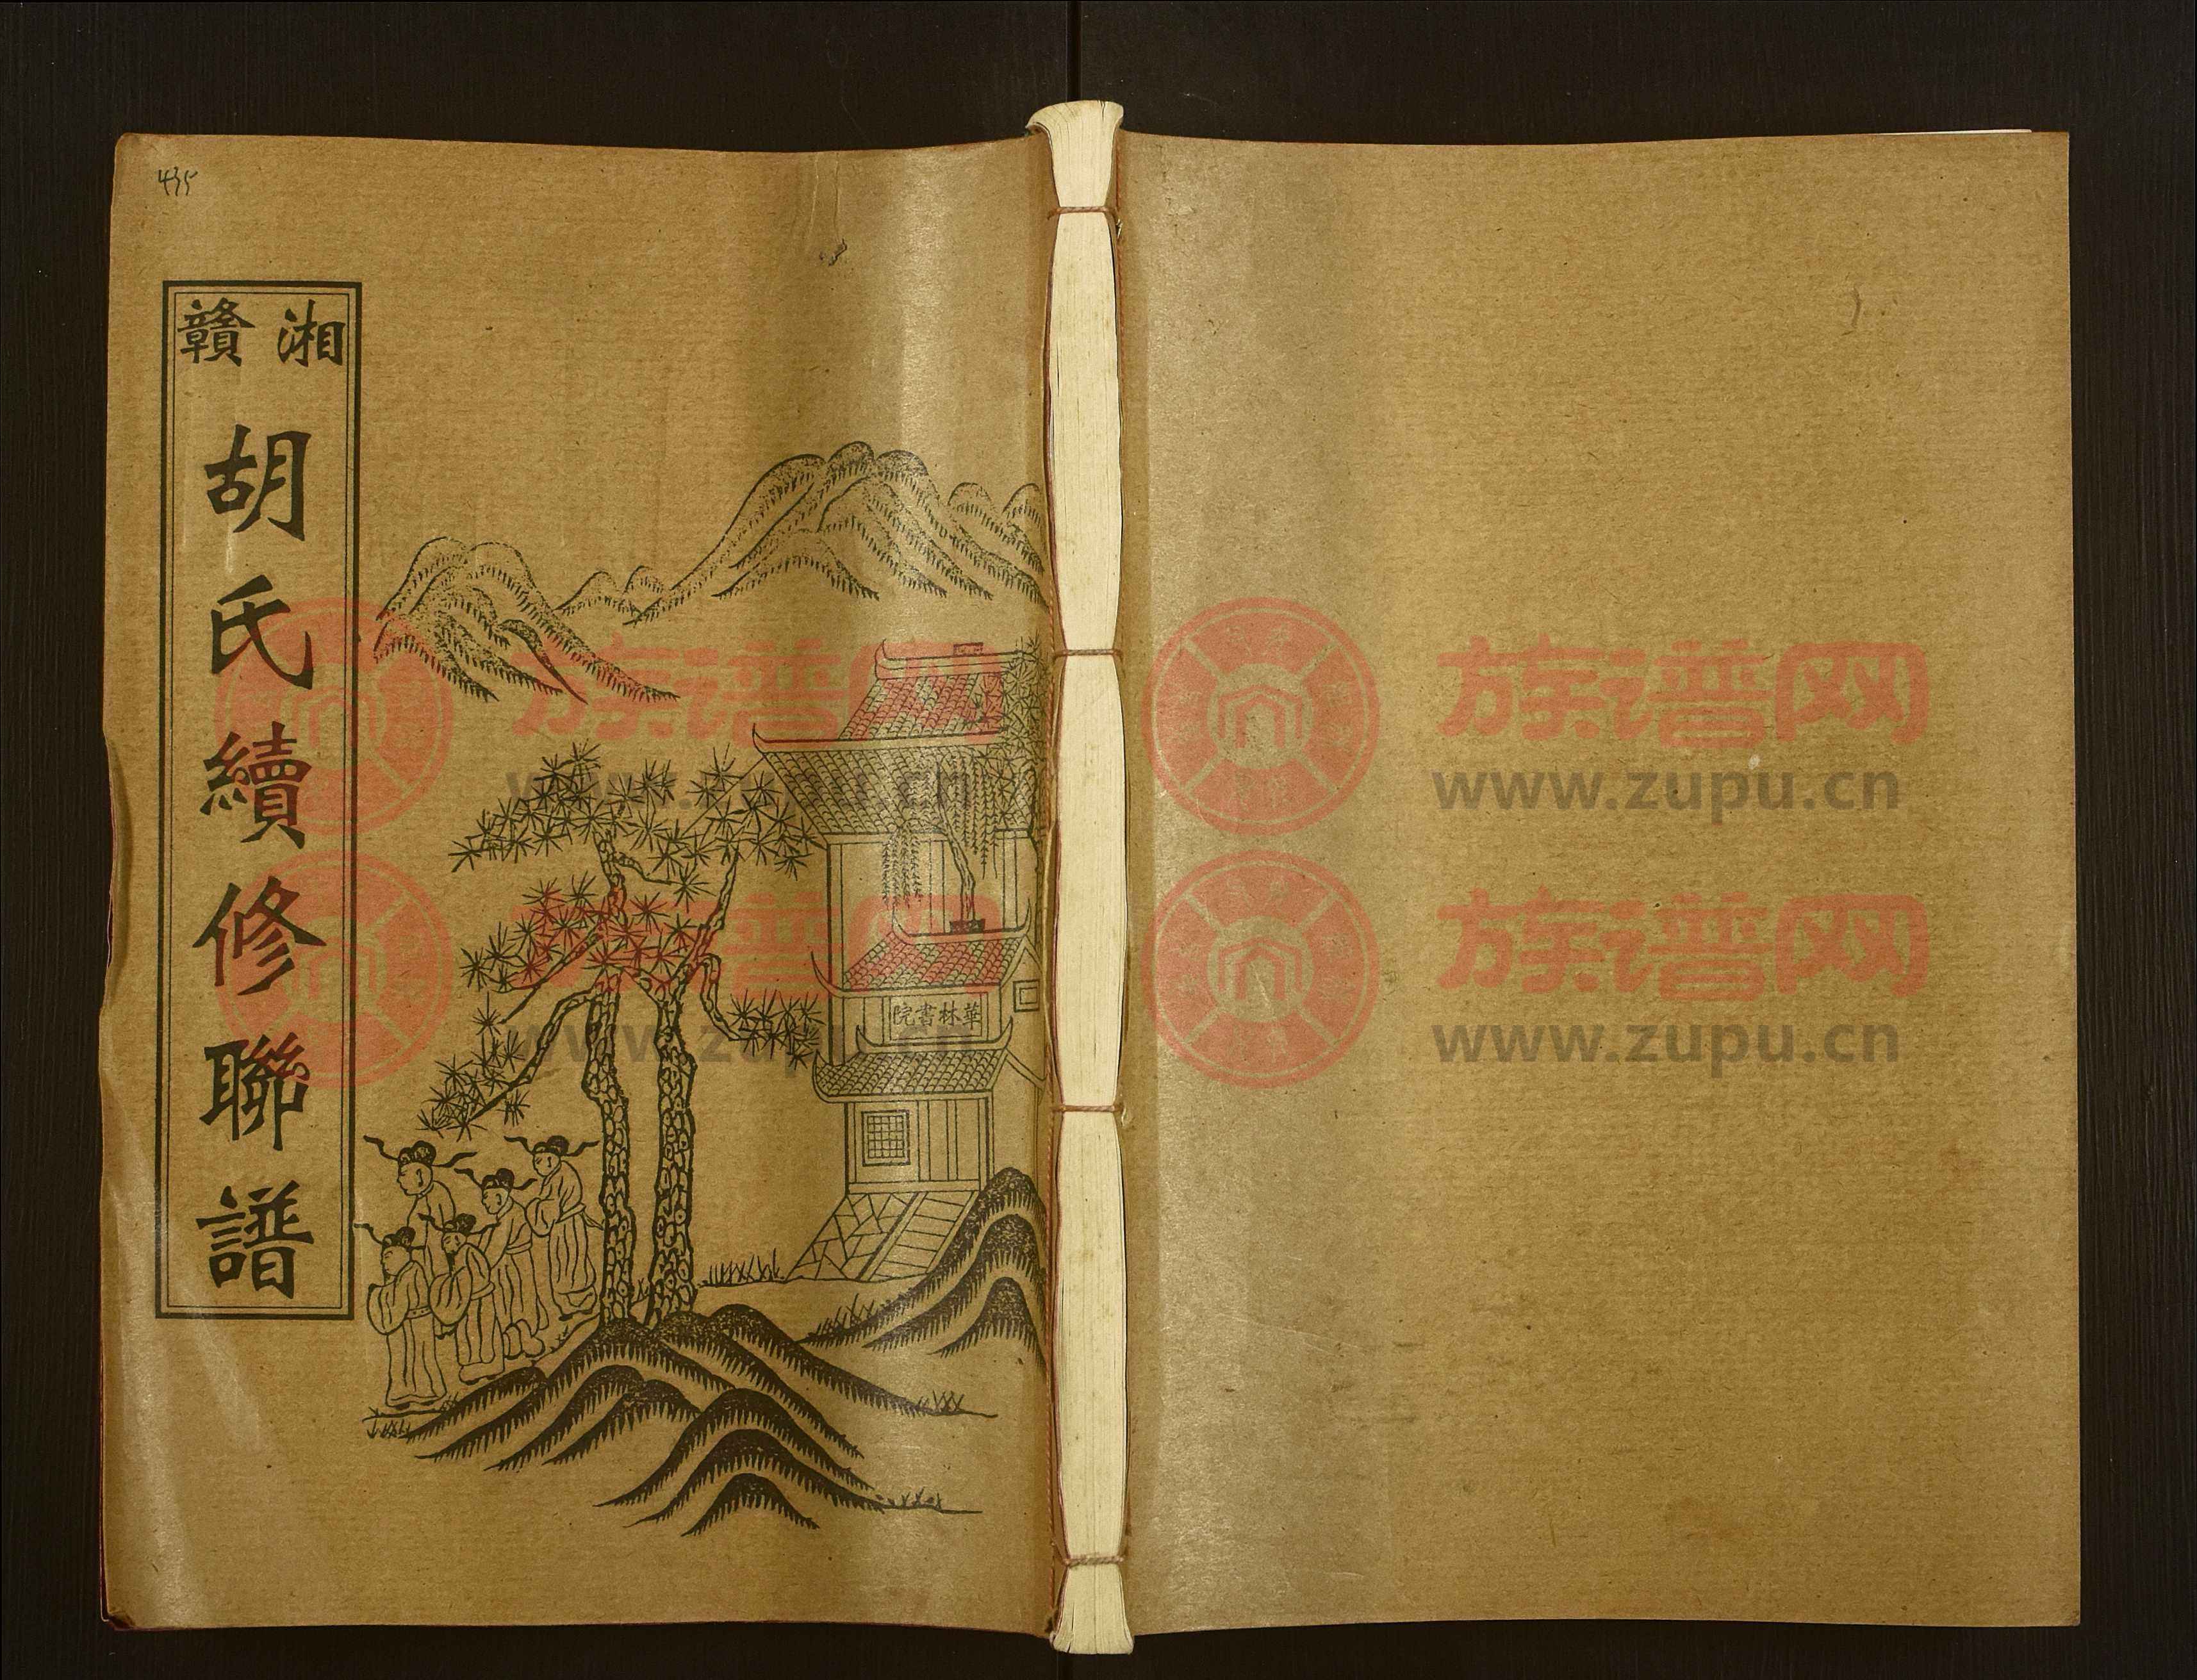 435
湘贛
胡氏續修聯譜
華林書院
族谱网
www.zupu.cn
族谱网
www.zupu.cn
族谱网
www.zupu.cn
族谱网
www.zupu.cn